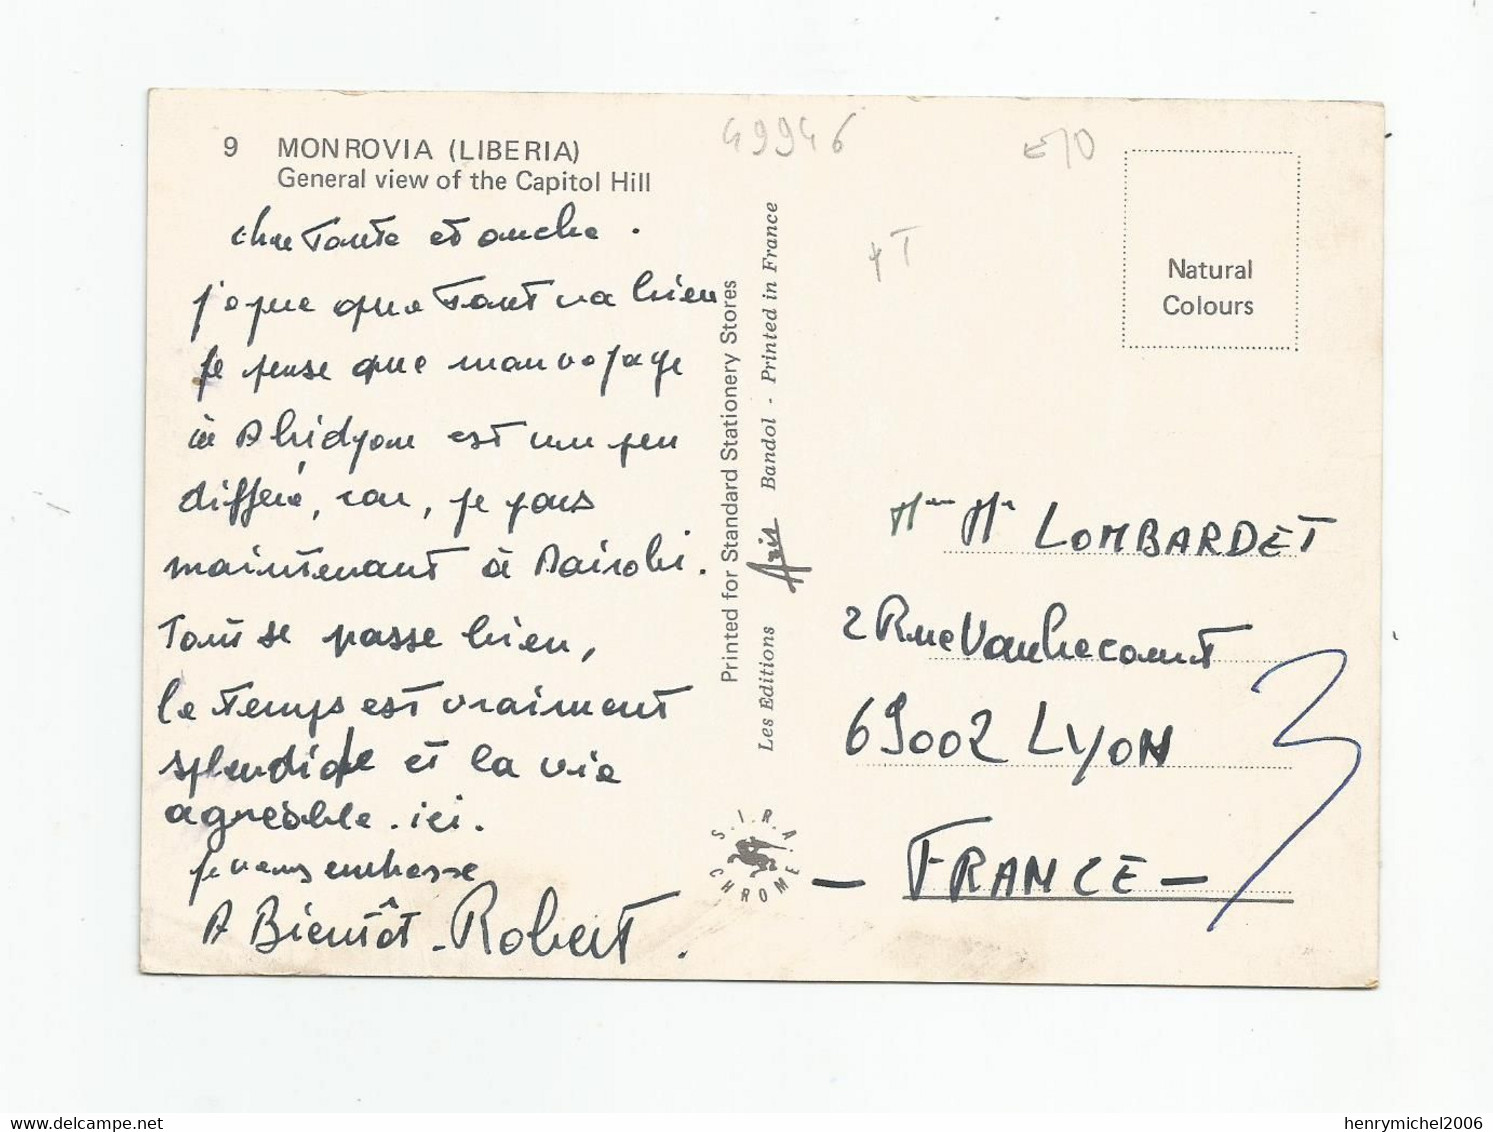 9 MONROVIA (LIBERIA)
General view of the Capitol Hill
cher Tante et oncle.
j'espere que Tout va bien
je pense que mon voyage
à Abidjan est un peu
differé, car, je pars
maintenant à Nairobi.
Tout se passe bien,
le Temps est vraiment
splendide et la vie
agréable. ici.
je vous embrasse
A Bientôt - Robert.
49946
E/O
Printed for Standard Stationery Stores
Les Editions Aris Bandol - Printed in France
S.I.R.A.
CHROME
Natural
Colours
Mme Mr LOMBARDET
2 Rue Vaubecourt
69002 LYON
- FRANCE -
henrymichel2006
delcampe.net